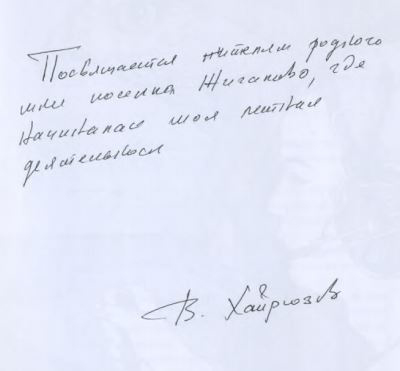 Посвящается жителям родного
мне поселка Жигалово, где
начиналась моя летная
деятельность
В. Хайрюзов